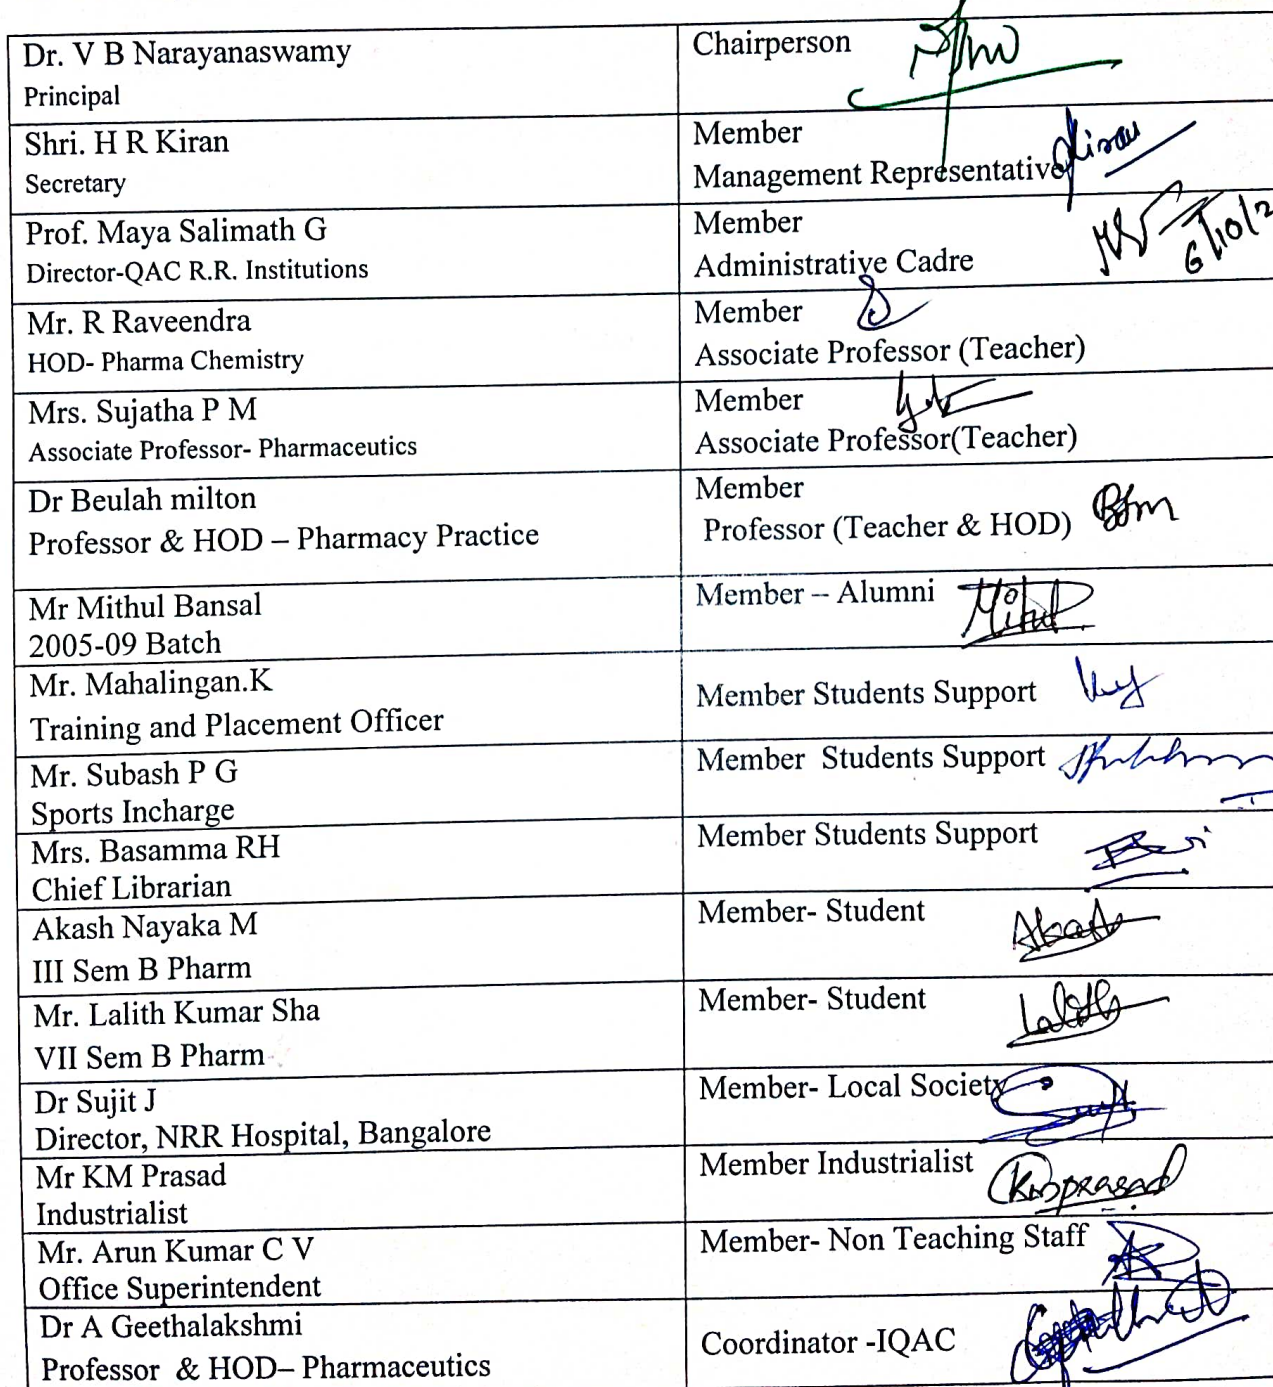 Dr. V B Narayanaswamy
Principal
Chairperson
Shri. H R Kiran
Secretary
Member
Management Representative
Kiran
Prof. Maya Salimath G
Director-QAC R.R. Institutions
Member
Administrative Cadre
6/10/2
Mr. R Raveendra
HOD- Pharma Chemistry
Member
Associate Professor (Teacher)
Mrs. Sujatha P M
Associate Professor- Pharmaceutics
Member
Associate Professor(Teacher)
Dr Beulah milton
Professor & HOD – Pharmacy Practice
Member
Professor (Teacher & HOD)
Mr Mithul Bansal
2005-09 Batch
Member – Alumni
Mr. Mahalingan.K
Training and Placement Officer
Member Students Support
Mr. Subash P G
Sports Incharge
Member Students Support
Mrs. Basamma RH
Chief Librarian
Member Students Support
Akash Nayaka M
III Sem B Pharm
Member- Student
Mr. Lalith Kumar Sha
VII Sem B Pharm
Member- Student
Lalith
Dr Sujit J
Director, NRR Hospital, Bangalore
Member- Local Society
Mr KM Prasad
Industrialist
Member Industrialist
KMPrasad
Mr. Arun Kumar C V
Office Superintendent
Member- Non Teaching Staff
Dr A Geethalakshmi
Professor & HOD– Pharmaceutics
Coordinator -IQAC